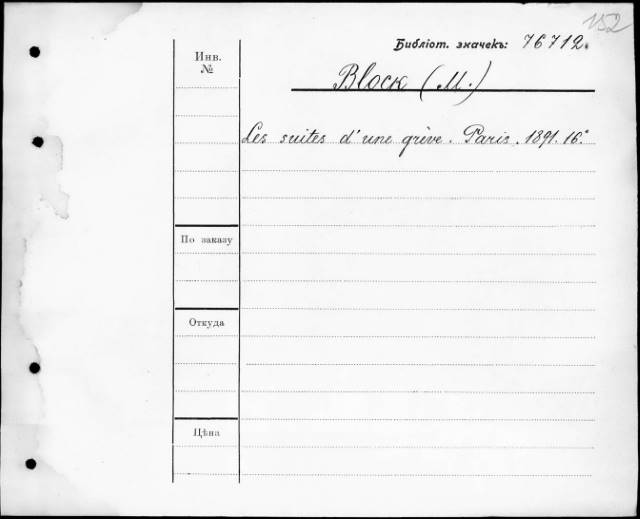 152
Библіот. значекъ: 76712.
Инв.
№
Block (M.)
Les suites d'une grève. Paris. 1891. 16°
По заказу
Откуда
Цѣна